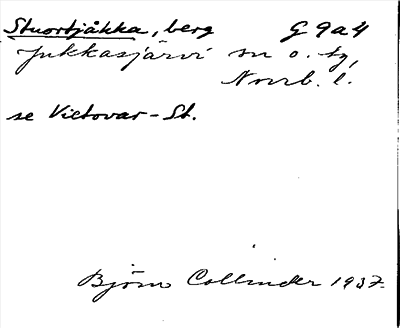 Stuortjåkka, berg G 9 a 4
Jukkasjärvi sn o. tg,
Norrb. l.
se Vietovar-St.
Björn Collinder 1937.